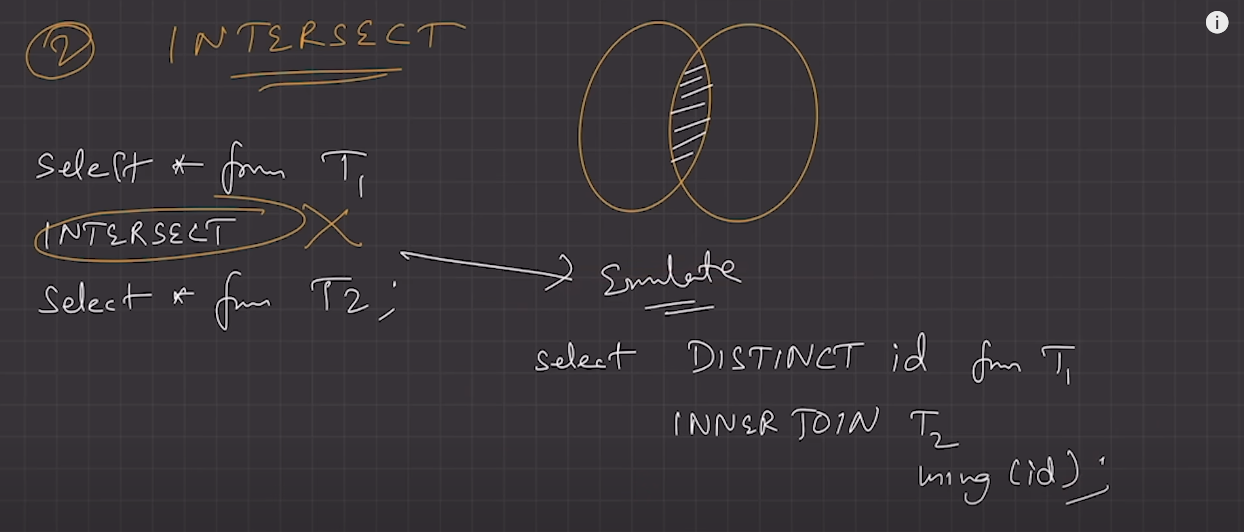 ② INTERSECT
Select * from T1
INTERSECT X
Select * from T2;
Emulate
select DISTINCT id from T1
INNER JOIN T2
using (id);